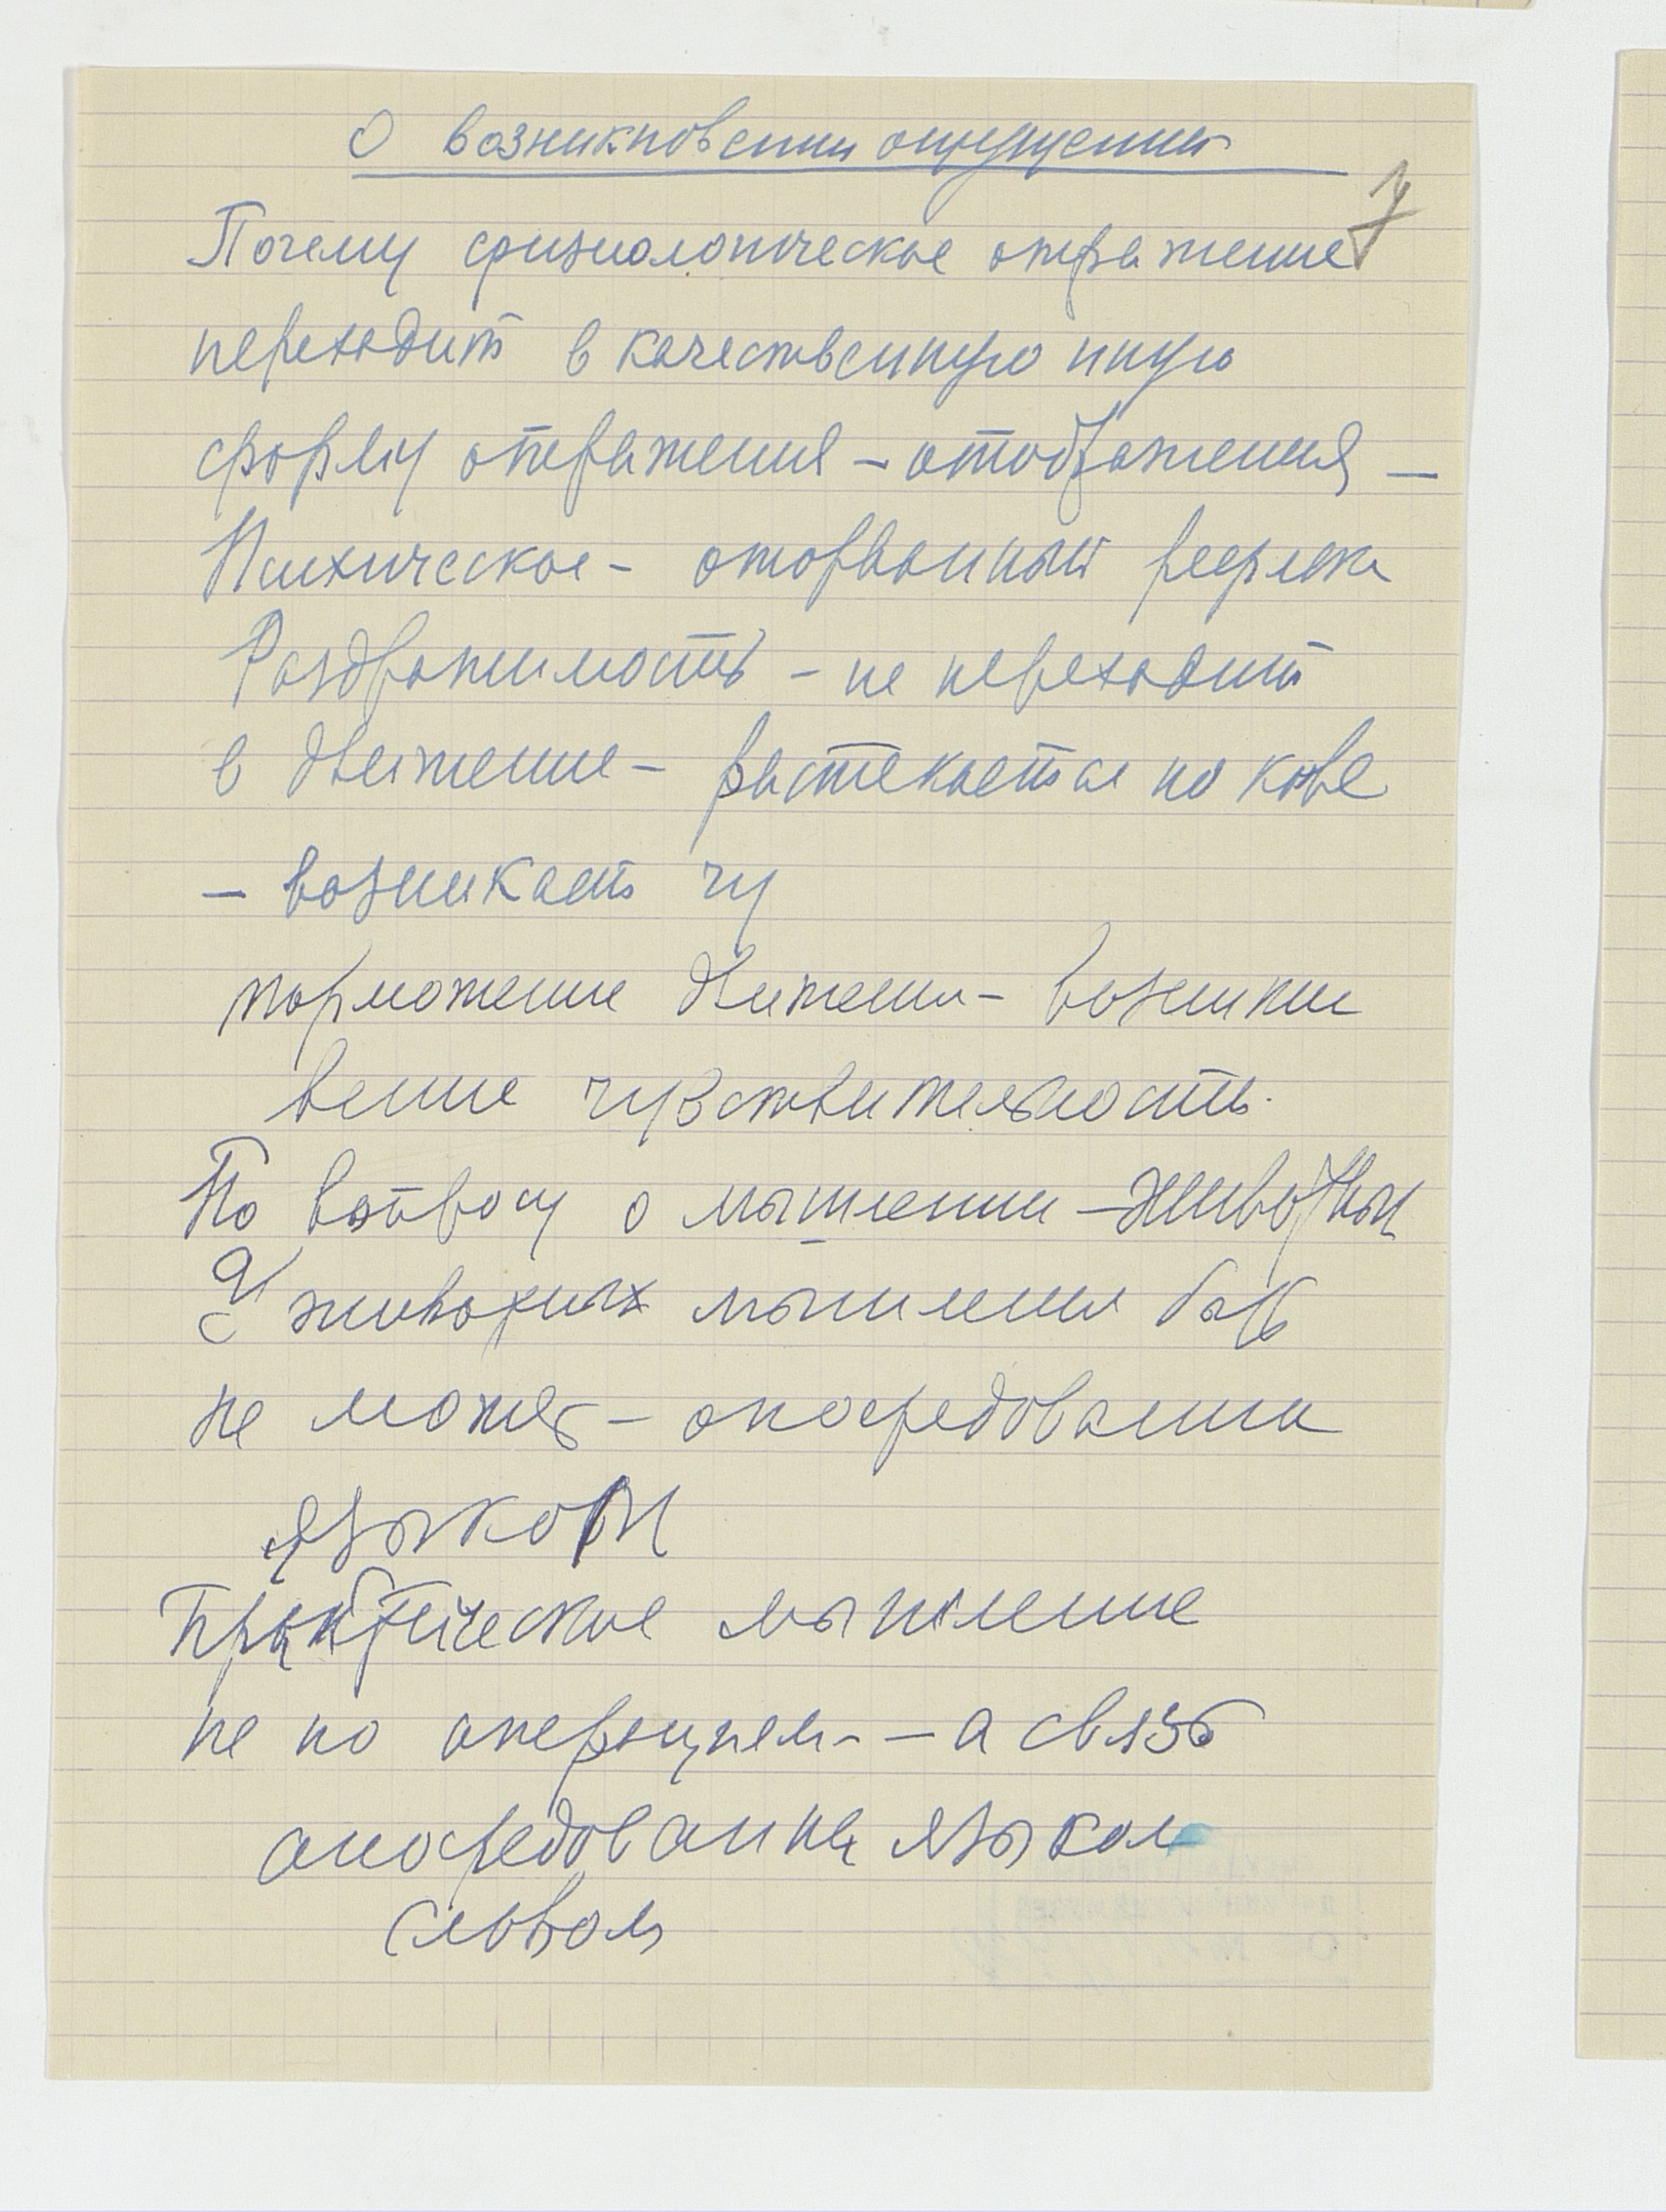 О возникновении ощущения
7
Почему физиологическое отражение
переходит в качественную иную
форму отражения – отображения –
Психическое – оторванный рефлекс
Раздражимость – не переходит
в движение – растекается по коре
– возникает чу
торможение движени – возникно
вение чувствительность.
По вопросу о мышлении – животных
У животных мышления быть
не может – опосредования
языком
Практическое мышление
не по операциям – а связь
опосредования языком
словом